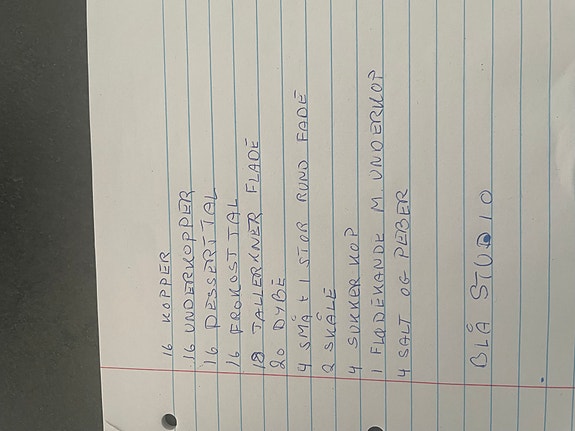 16 KOPPER
16 UNDERKOPPER
16 DESSERT TAL
16 FROKOST TAL
18 TALLERKNER FLADE
20 DYBE
4 SMÅ + 1 STOR RUND FADE
2 SKÅLE
4 SUKKER KOP
1 FLØDEKANDE M. UNDERKOP
4 SALT OG PEBER
BLÅ STUDIO